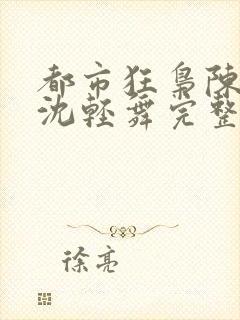 都市狂梟陳
沈輕舞完整
徐亮